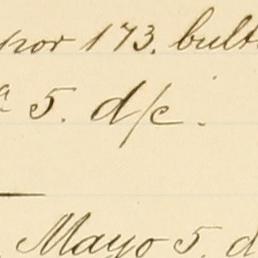 por 173. bult
a 5. d/c.
Mayo 5. d